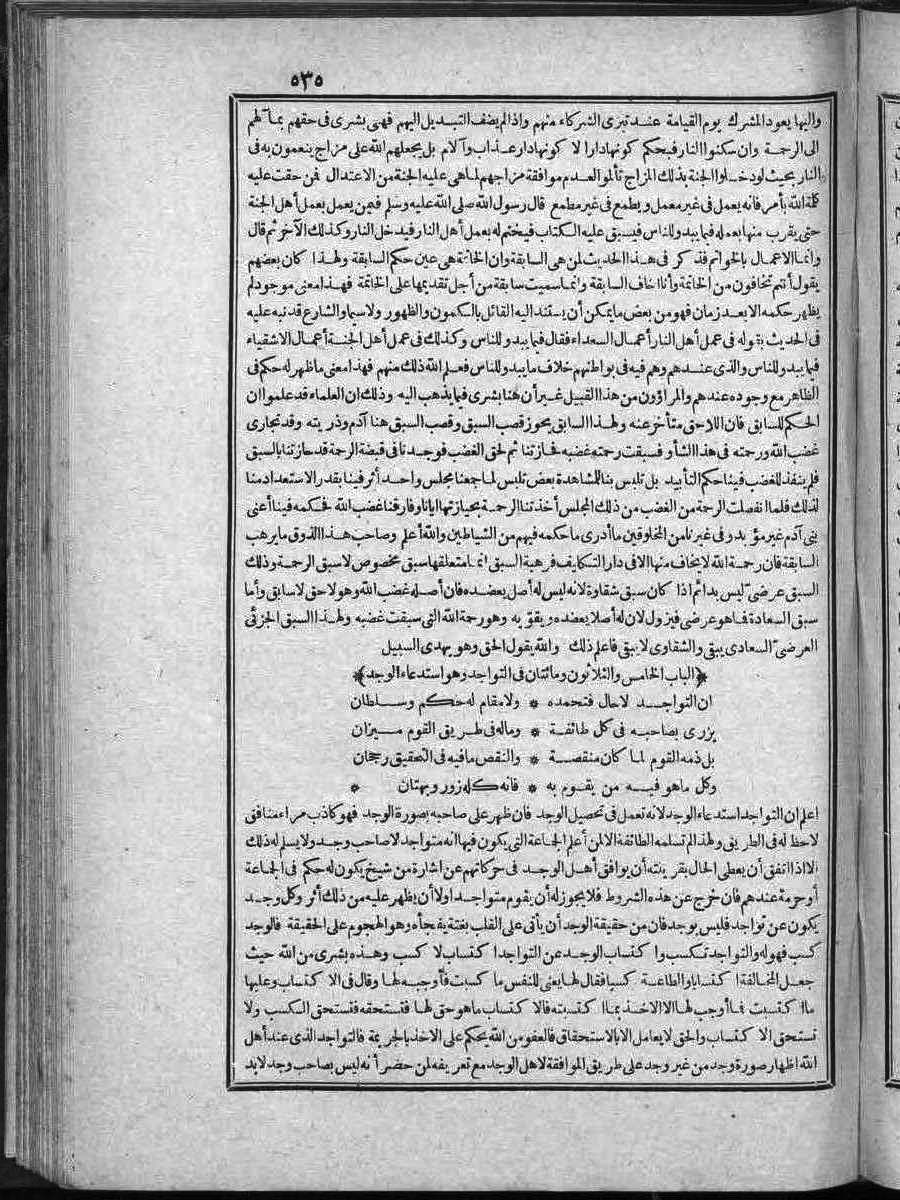 ٥٣٥
واليها يعود المشرك يوم القيامة عند تبرى الشركاء منهم واذا لم يضف التبديل اليهم فهى بشرى فى حقهم بمآ لهم
الى الرحمة وان سكنوا النار فبحكم كونها دارا لا كونها دار عذاب وآلام بل يجعلهم الله على مزاج ينعمون به فى
النار بحيث لو دخلوا الجنة بذلك المزاج تألموا لعدم موافقة مزاجهم لما هى عليه الجنة من الاعتدال فمن حقت عليه
كلة الله بأمر فانه يعمل فى غير معمل ويطمع فى غير مطمع قال رسول الله صلى الله عليه وسلم فمين يعمل بعمل أهل الجنة
حتى يقرب منها بعمله فيما يبدو للناس فيسبق عليه الكتاب فيختم له بعمل أهل النار فيدخل النار وكذلك الآخر ثم قال
وانما الاعمال بالخواتم فذكر فى هذا الحديث لمن هى السابقة وان الخاتمة هى عين حكم السابقة ولهذا كان بعضهم
يقول أنتم تخافون من الخاتمة وأنا أخاف السابقة وانما سميت سابقة من أجل تقديمها على الخاتمة فهذا معنى موجود لم
يظهر حكمه الا بعد زمان فهو من بعض ما يمكن أن يستند اليه القائل بالكمون والظهور ولا سيما والشارع قد نبه عليه
فى الحديث بقوله فى عمل أهل النار أعمال السعداء فقال فيما يبدو للناس وكذلك فى عمل أهل الجنة أعمال الاشقياء
فيما يبدو للناس والذى عندهم وهم فيه فى بواطنهم خلاف ما يبدو للناس فعلم الله ذلك منهم فهذا معنى ما ظهر له حكم فى
الظاهر مع وجوده عندهم والمراؤون من هذا القبيل غير أن هنا بشرى فيما يذهب اليه وذلك ان العلماء قد علموا ان
الحكم للسابق فان اللاحق متأخر عنه ولهذا السابق يحوز قصب السبق وقصب السبق هنا آدم وذريته وقد تجارى
غضب الله ورحمته فى هذا الشأو فسبقت رحمته غضبه فحازتنا ثم لحق الغضب فوجدنا فى قبضة الرحمة قد حازتنا بالسبق
فلم ينفذ للغضب فينا حكم التأبيد بل تلبس بنا للمشاهدة بعض تلبس لما جعنا مجلس واحد أثر فينا بقدر الاستعداد منا
لذلك فلما انفصلت الرحمة من الغضب من ذلك المجلس أخذتنا الرحمة بحيازتها ايانا وفارقنا غضب الله فحكمه فينا أعنى
بنى آدم غير مؤبد وفى غيرنا من المخلوقين ما أدرى ما حكمه فيهم من الشياطين والله أعلم وصاحب هذا الذوق ما يرهب
السابقة فان رحمة الله لا يخاف منها الا فى دار التكليف فرهبة السبق انما متعلقها سبق مخصوص لا سبق الرحمة وذلك
السبق عرضىّ ليس بدائم اذا كان سبق شقاوة لانه ليس له أصل يعضده فان أصله غضب الله وهو لاحق لا سابق وأما
سبق السعادة فما هو عرضى فيزول لان له أصلا يعضده ويقوّيه وهو رحمة الله التى سبقت غضبه ولهذا السبق الجزئى
العرضىّ السعادى يبقى والشقاوى لا يبقى فاعلم ذلك والله يقول الحق وهو يهدى السبيل
﴿الباب الخامس والثلاثون ومائتان فى التواجد وهو استدعاء الوجد﴾
ان التواجد لا حال فتحمده * ولا مقام له حكم وسلطان
يزرى بصاحبه فى كل طائفة * وماله فى طريق القوم ميزان
بل ذمه القوم لما كان منقصة * والنقص ما فيه فى التحقيق رجحان
وكل ما هو فيه من يقوم به * فانه كله زور وبهتان *
اعلم ان التواجد استدعاء الوجد لانه تعمل فى تحصيل الوجد فان ظهر على صاحبه بصورة الوجد فهو كاذب مراء منافق
لا حظ له فى الطريق ولهذا لم تسلمه الطائفة الا لمن أعلم الجماعة التى يكون فيها انه متواجد لا صاحب وجد ولا يسلم له ذلك
الا اذا اتفق أن يعطى الحال بقرينته أن يوافق أهل الوجد فى حركاتهم عن اشارة من شيخ يكون له حكم فى الجماعة
أو حرمة عندهم فان خرج عن هذه الشروط فلا يجوز له أن يقوم متواجدا ولا أن يظهر عليه من ذلك أثر وكل وجد
يكون عن تواجد فليس بوجد فان من حقيقة الوجد أن يأتى على القلب بغتة يفجأه وهو الهجوم على الحقيقة فالوجد
كسب فهو له والتواجد تكسب واكتساب الوجد عن التواجد اكتساب لا كسب وهذه بشرى من الله حيث
جعل المخالفة اكتسابا والطاعة كسبا فقال لها يعنى للنفس ما كسبت فأوجبه لها وقال فى الاكتساب وعليها
ما اكتسبت فما أوجب لها الا الاخذ بما اكتسبته فالاكتساب ما هو حق لها فتستحقه فتستحق الكسب ولا
تستحق الاكتساب والحق لا يعامل الا بالاستحقاق فالعفو من الله يحكم على الاخذ بالجريمة فالتواجد الذى عند أهل
الله اظهار صورة وجد من غير وجد على طريق الموافقة لاهل الوجد مع تعريفه لمن حضر أنه ليس بصاحب وجد لابد